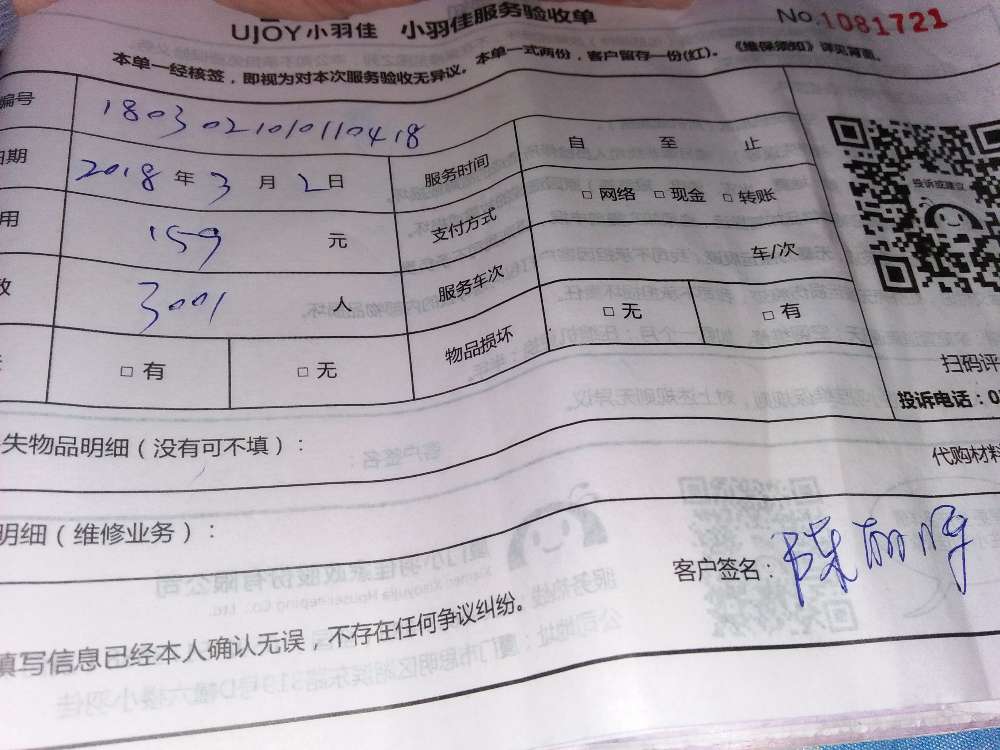 UJOY小羽佳 小羽佳服务验收单 No.1081721
本单一经核签，即视为对本次服务验收无异议。本单一式两份，客户留存一份(红)。《维保须知》详见背面。
编号 1803021010110418
日期 2018 年 3 月 2 日 服务时间 自 至 止
用 159 元 支付方式 □ 网络 □ 现金 □ 转账
数 3001 人 服务车次 车/次
□ 有 □ 无 物品损坏 □ 无 □ 有
投诉或建议
扫码评
投诉电话：0
失物品明细（没有可不填）：
代购材料
明细（维修业务）：
客户签名：
填写信息已经本人确认无误，不存在任何争议纠纷。